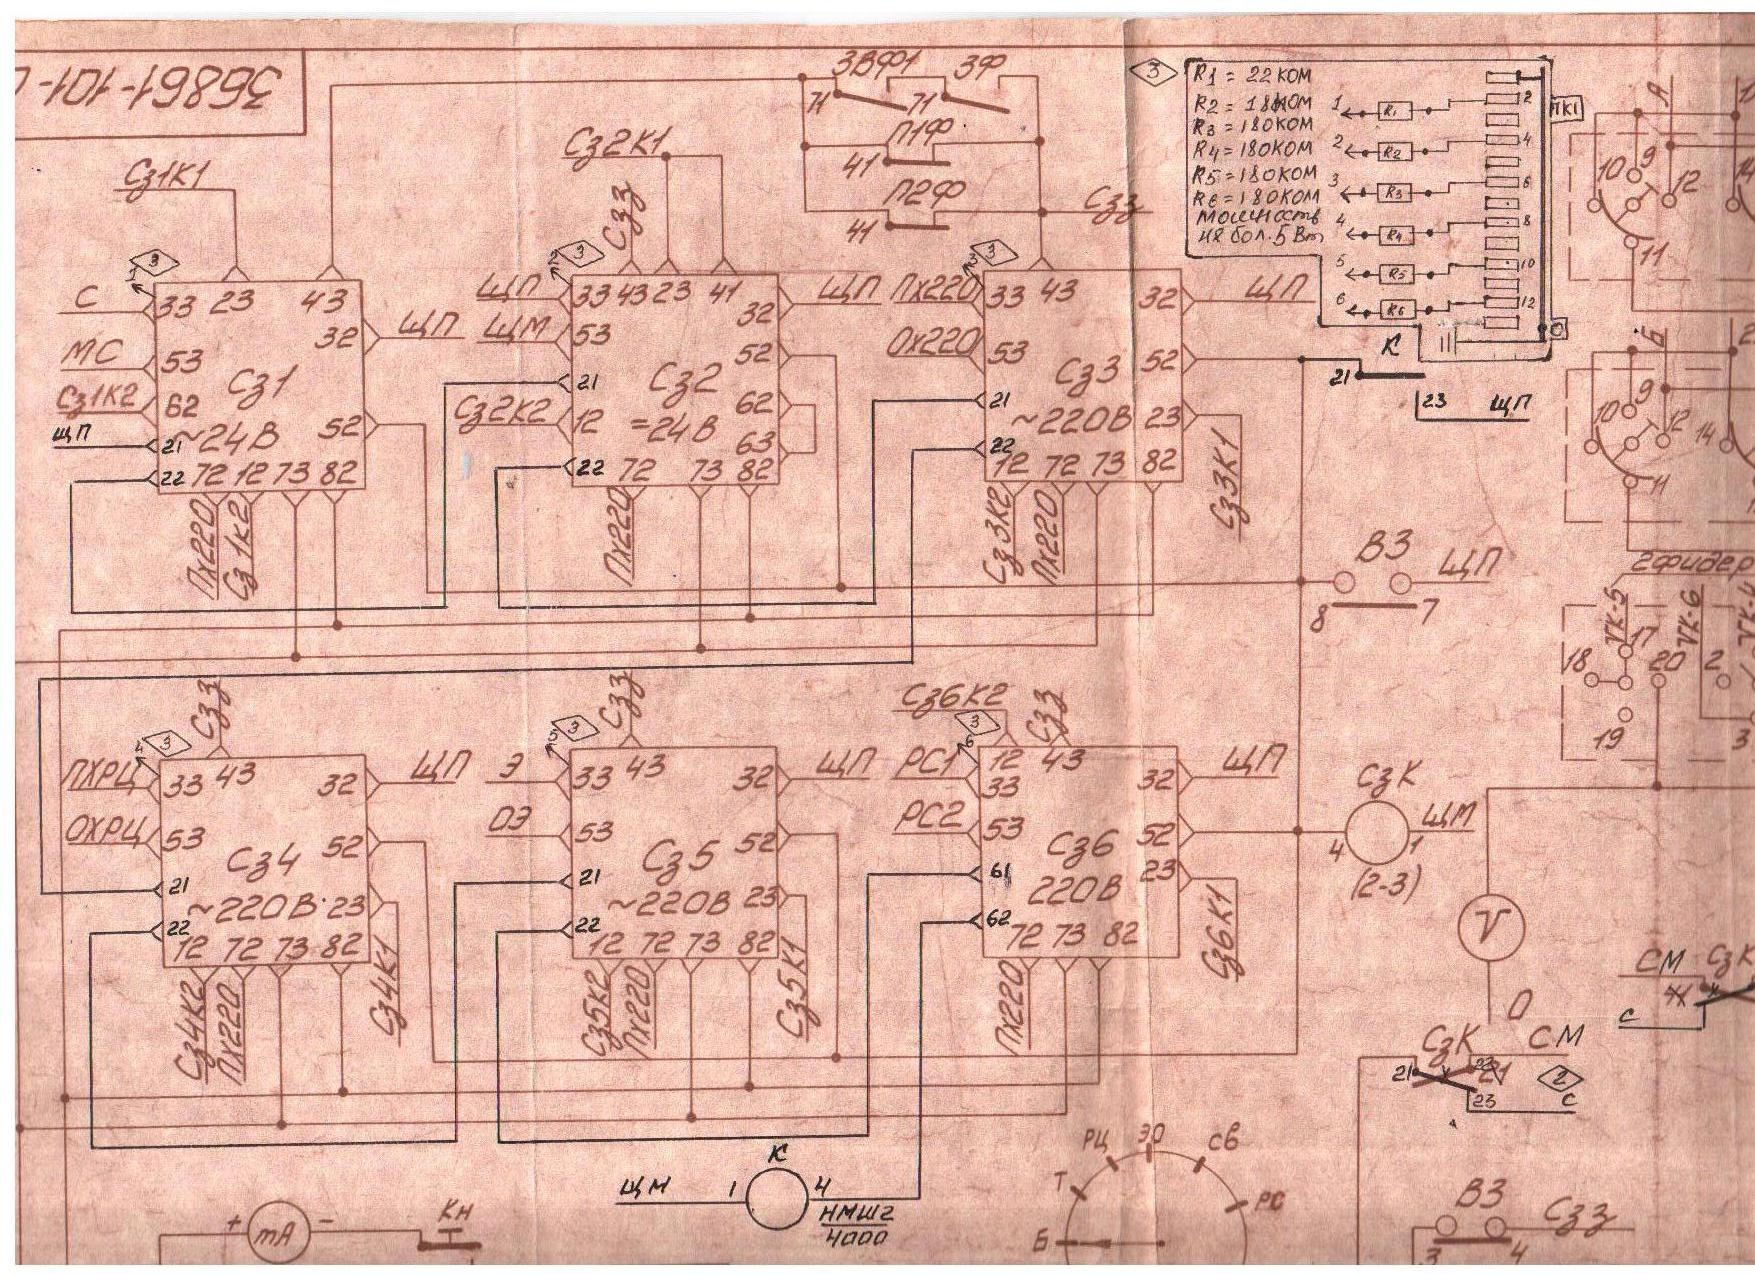 36861-101-
Сз1К1
3
1
С
МС
Сз1К2
ЩП
33 23 43
32
53
62
21
22
Сз1
~24В
52
72 12 73 82
ЩП
Пх220
Сз1К2
Сз2К1
Сзз
2
3
ЩП
ЩМ
Сз2К2
33 43 23 41
32
53
52
21
Сз2
62
12
=24В
63
22
72 73 82
ЩП
Пх220
3ВФ1
3Ф
71
71
П1Ф
41
П2Ф
41
Сзз
3
3
Пх220
Ох220
33 43 32
53
52
Сз3
21
~220В
23
22
12 72 73 82
ЩП
Сз3К2
Пх220
Сз3К1
3
R1 = 22 КОМ
R2 = 18КОМ
R3 = 180КОМ
R4 = 180КОМ
R5 = 180КОМ
R6 = 180КОМ
МОЩНОСТЬ
НЕ БОЛ. 5 Вт
1 R1 2
2 R2 4
3 R3 6
4 R4 8
5 R5 10
6 R6 12
ПК1
К
21
23 ЩП
А
10 9 12
11
14
Б
10 9 12
11
14
В3
8 7
ЩП
2фидер
VК-5
VК-6
VК-4
17
18
20
2
19
3
Сзз
4
3
ПХРЦ
ОХРЦ
33 43 32
53
52
Сз4
21
~220В
23
22
12 72 73 82
ЩП
Сз4К2
Пх220
Сз4К1
Сзз
5
3
Э
ОЭ
33 43 32
53
52
Сз5
21
~220В
23
22
12 72 73 82
ЩП
Сз5К2
Пх220
Сз5К1
Сз6К2
Сзз
3
6
РС1
РС2
12 43 32
33
53
52
Сз6
61
220В
23
62
72 73 82
ЩП
Пх220
Сз6К1
СзК
4 1
ЩМ
(2-3)
V
СМ СзК
С
СзК СМ
21
23
2
С
К
ЩМ
1 4
НМШ2
4000
РЦ
ЭО
СВ
Т
РС
Б
+ mA -
КН
В3
3 4
Сзз